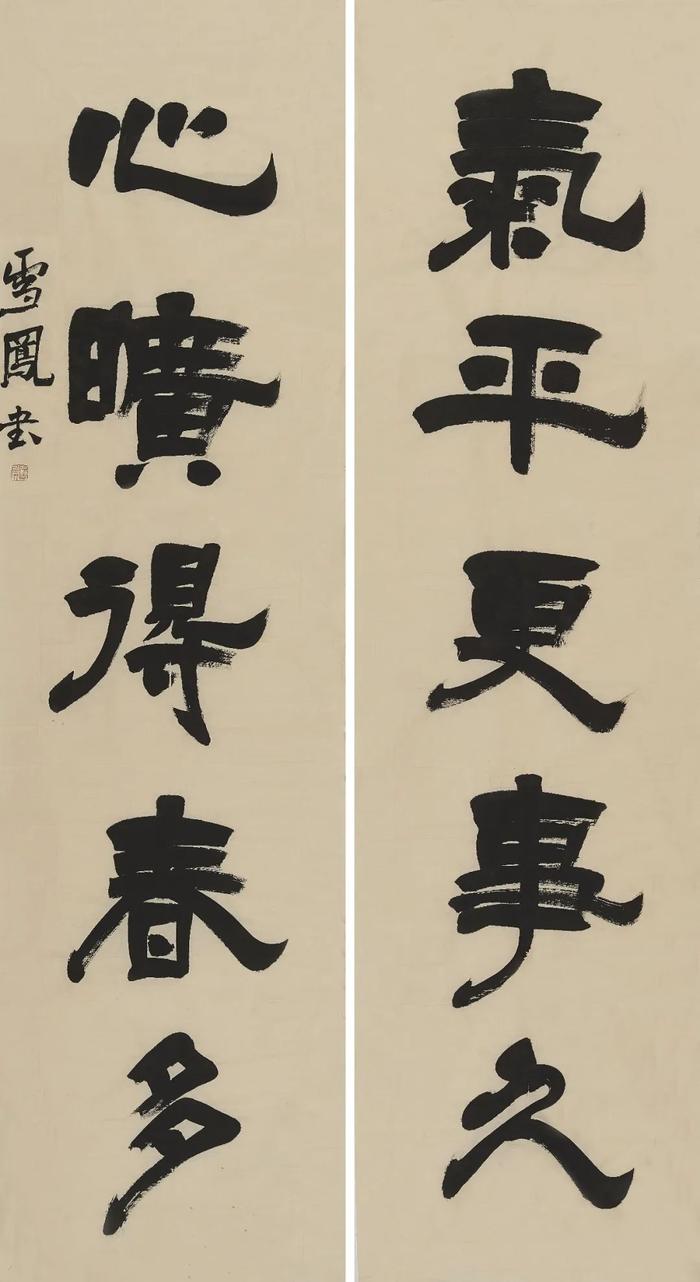 氣平更事久
心曠得春多
雪鳳書